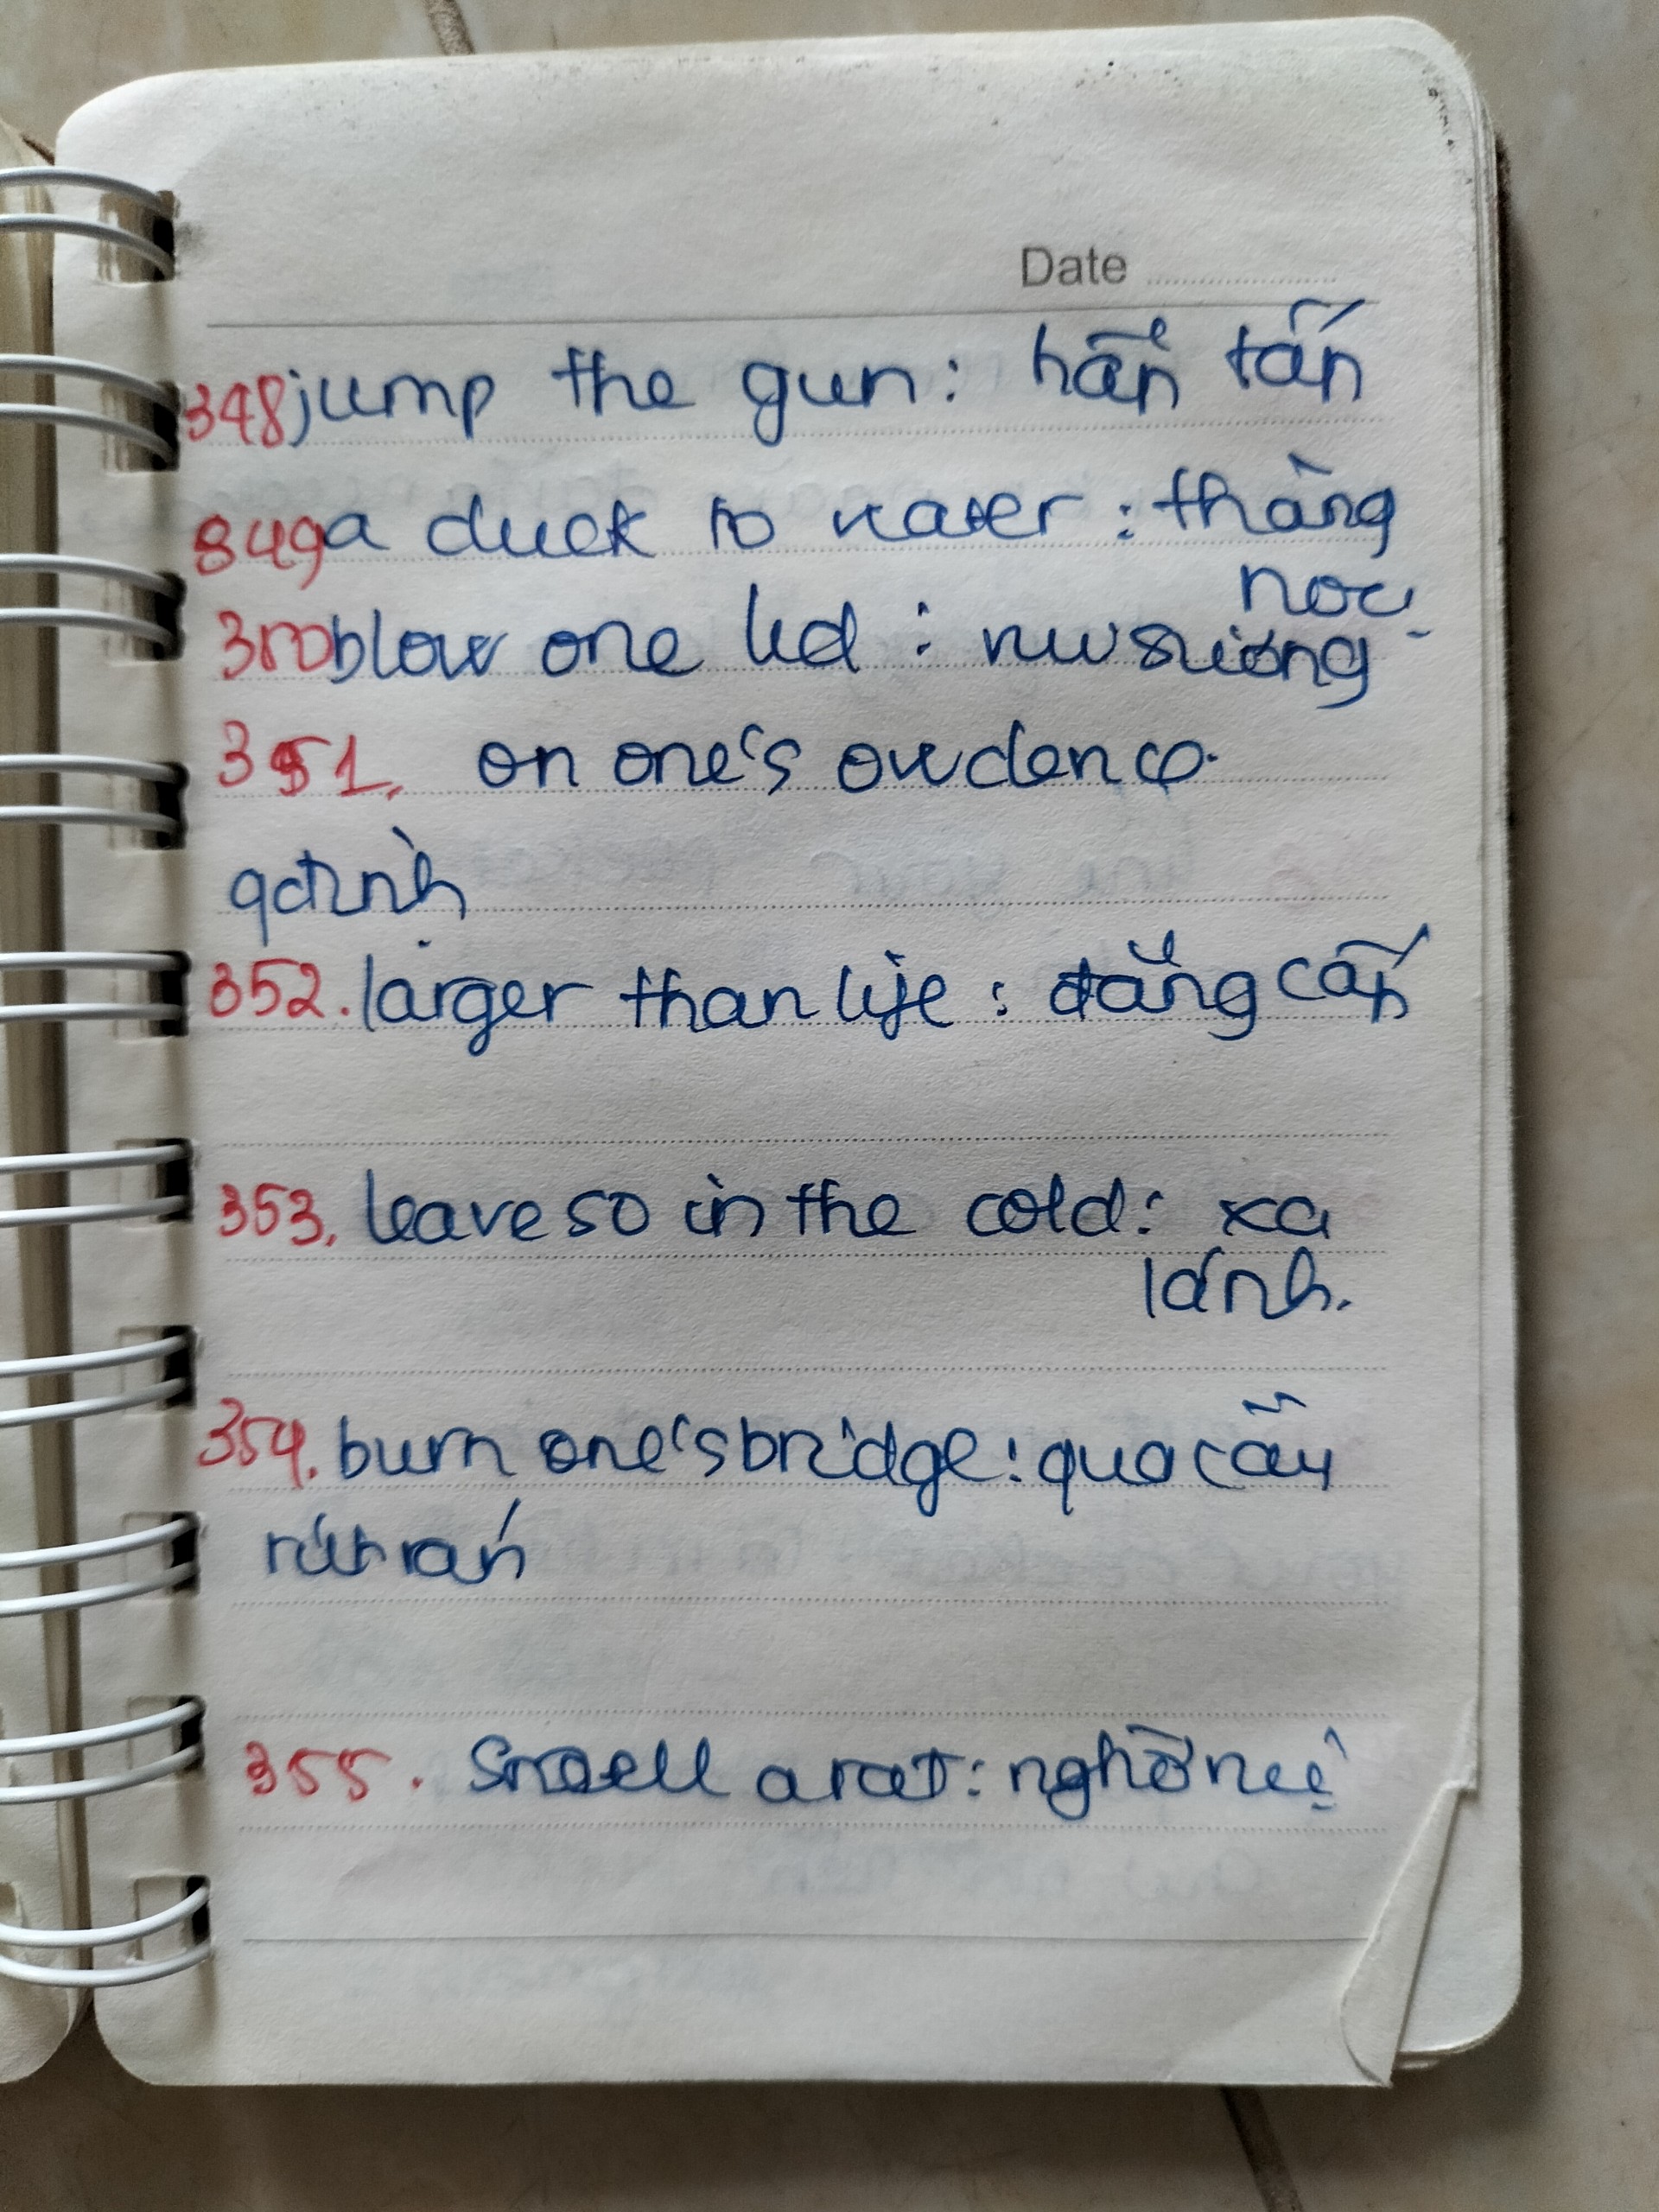 Date
348 jump the gun: hấp tấp
849 a duck to water: thằng
nọc
350 blow one lid:
351. on one's own
352. larger than life: đẳng cấp
353. leave so in the cold: xa
lánh.
354. burn one's bridge: qua cầu
rút ván
355. Smell a rat: nghờ